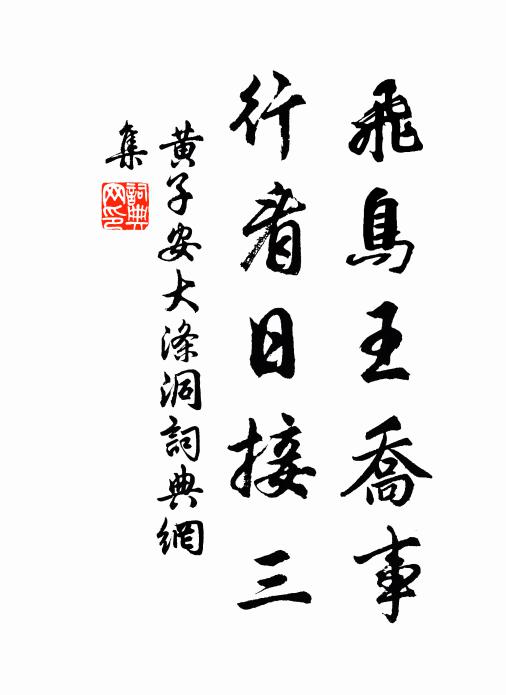 飛鳥王喬事
行看日接三
黄子安大滌洞詞典網
集
詞典
网印